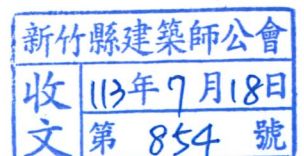 新竹縣建築師公會
收文
113年7月18日
第 854 號